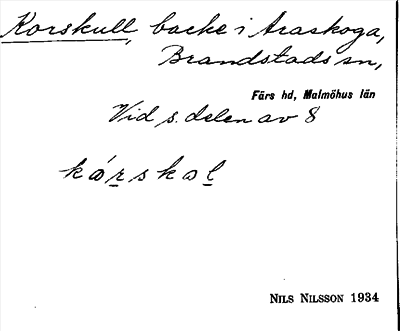 Korskull, backe i Araskoga,
Brandstads sn,
Färs hd, Malmöhus län
Vid s. delen av 8
kórskal
NILS NILSSON 1934